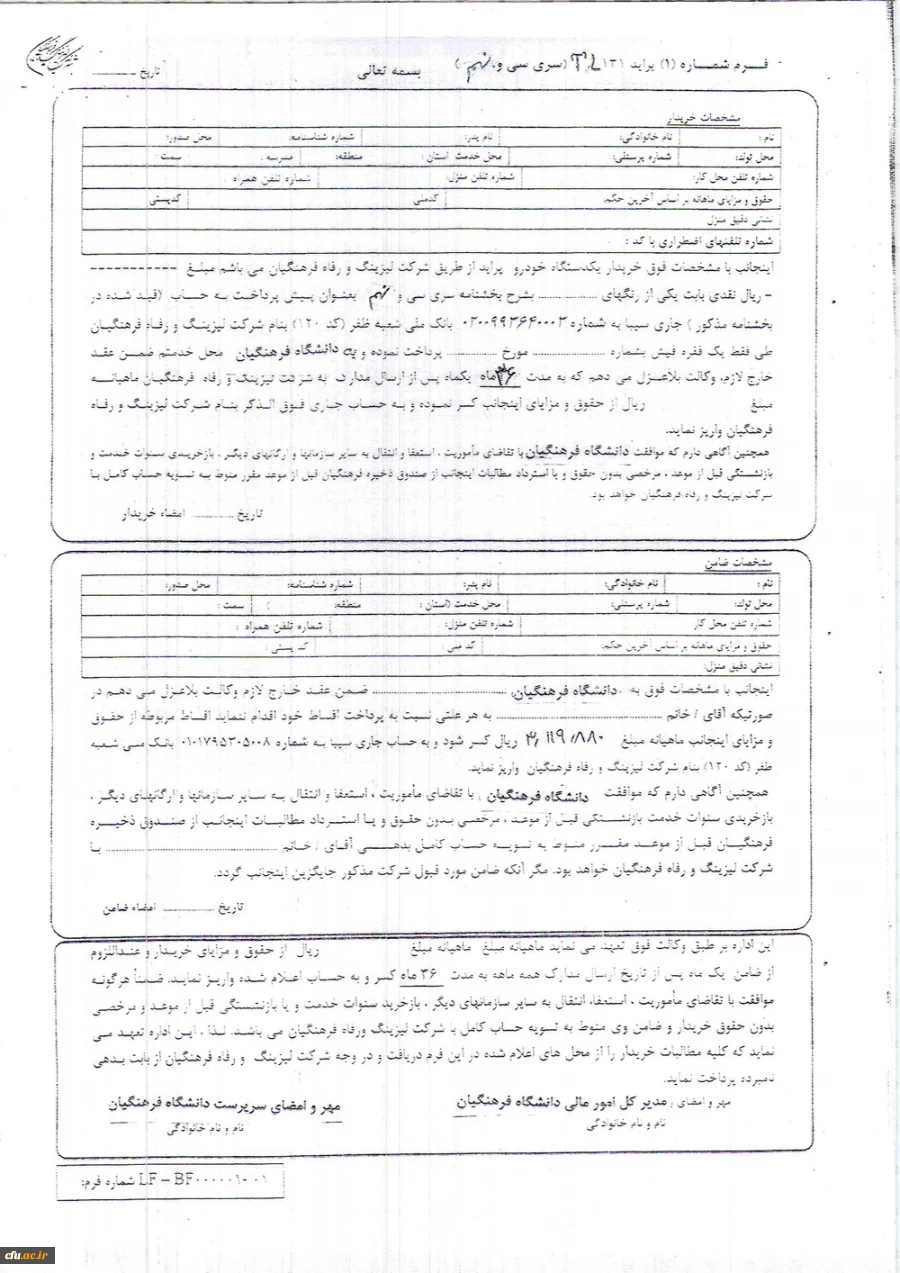 فرم شماره (۱) پراید ۱۳۱ TL (سری سی و نهم)
بسمه تعالی
تاریخ ............
مشخصات خریدار
نام : نام خانوادگی: نام پدر: شماره شناسنامه: محل صدور:
محل تولد: شماره پرسنلی: محل خدمت استان : منطقه: مدرسه : سمت :
شماره تلفن محل کار: شماره تلفن منزل: شماره تلفن همراه :
حقوق و مزایای ماهانه بر اساس آخرین حکم: کدملی کدپستی
نشانی دقیق منزل
شماره تلفنهای اضطراری با کد :
اینجانب با مشخصات فوق خریدار یکدستگاه خودرو پراید از طریق شرکت لیزینگ و رفاه فرهنگیان می باشم مبلغ -----------
- ریال نقدی بابت یکی از رنگهای .................. بشرح بخشنامه سری سی و نهم بعنوان پیش پرداخت به حساب (قید شده در
بخشنامه مذکور ) جاری سیبا به شماره ۰۲۰۰۹۹۳۶۴۰۰۰۳ بانک ملی شعبه ظفر (کد ۱۲۰) بنام شرکت لیزینگ و رفاه فرهنگیان
طی فقط یک فقره فیش بشماره .................. مورخ .................. پرداخت نموده و به دانشگاه فرهنگیان محل خدمتم ضمن عقد
خارج لازم، وکالت بلاعزل می دهم که به مدت ۳۶ ماه یکماه پس از ارسال مدارک به شرکت لیزینگ و رفاه فرهنگیان ماهیانه
مبلغ ریال از حقوق و مزایای اینجانب کسر نموده و به حساب جاری فوق الذکر بنام شرکت لیزینگ و رفاه
فرهنگیان واریز نماید.
همچنین آگاهی دارم که موافقت دانشگاه فرهنگیان با تقاضای مأموریت ، استعفا و انتقال به سایر سازمانها و ارگانهای دیگر ، بازخریدی سنوات خدمت و
بازنشستگی قبل از موعد ، مرخصی بدون حقوق و یا استرداد مطالبات اینجانب از صندوق ذخیره فرهنگیان قبل از موعد مقرر منوط به تسویه حساب کامل با
شرکت لیزینگ و رفاه فرهنگیان خواهد بود.
تاریخ ............ امضاء خریدار
مشخصات ضامن
نام : نام خانوادگی: نام پدر: شماره شناسنامه: محل صدور:
محل تولد: شماره پرسنلی: محل خدمت (استان : منطقه: سمت :
شماره تلفن محل کار شماره تلفن منزل: شماره تلفن همراه :
حقوق و مزایای ماهانه بر اساس آخرین حکم: کد ملی : کد پستی :
نشانی دقیق منزل:
اینجانب با مشخصات فوق به دانشگاه فرهنگیان .................. ضمن عقد خارج لازم وکالت بلاعزل می دهم در
صورتیکه آقای / خانم .................. به هر علتی نسبت به پرداخت اقساط خود اقدام ننماید اقساط مربوطه از حقوق
و مزایای اینجانب ماهیانه مبلغ ۳,۱۱۹,۸۸۰ ریال کسر شود و به حساب جاری سیبا به شماره ۰۱۰۱۷۹۵۳۰۵۰۰۸ بانک ملی شعبه
ظفر (کد ۱۲۰) بنام شرکت لیزینگ و رفاه فرهنگیان واریز نماید.
همچنین آگاهی دارم که موافقت دانشگاه فرهنگیان با تقاضای مأموریت ، استعفا و انتقال به سایر سازمانها و ارگانهای دیگر ،
بازخریدی سنوات خدمت بازنشستگی قبل از موعد ، مرخصی بدون حقوق و یا استرداد مطالبات اینجانب از صندوق ذخیره
فرهنگیان قبل از موعد مقرر منوط به تسویه حساب کامل بدهی آقای / خانم .................. با
شرکت لیزینگ و رفاه فرهنگیان خواهد بود. مگر آنکه ضامن مورد قبول شرکت مذکور جایگزین اینجانب گردد.
تاریخ ............ امضاء ضامن
این اداره بر طبق وکالت فوق تعهد می نماید ماهیانه مبلغ ماهیانه مبلغ ریال از حقوق و مزایای خریدار و عنداللزوم
از ضامن یک ماه پس از تاریخ ارسال مدارک همه ماهه به مدت ۳۶ ماه کسر و به حساب اعلام شده واریز نماید. ضمناً هرگونه
موافقت با تقاضای مأموریت ، استعفا، انتقال به سایر سازمانهای دیگر ، بازخرید سنوات خدمت و یا بازنشستگی قبل از موعد و مرخصی
بدون حقوق خریدار و ضامن وی منوط به تسویه حساب کامل با شرکت لیزینگ ورفاه فرهنگیان می باشد. لذا ، این اداره تعهد می
نماید که کلیه مطالبات خریدار را از محل های اعلام شده در این فرم دریافت و در وجه شرکت لیزینگ و رفاه فرهنگیان از بابت بدهی
نامبرده پرداخت نماید.
مهر و امضای مدیر کل امور مالی دانشگاه فرهنگیان مهر و امضای سرپرست دانشگاه فرهنگیان
نام و نام خانوادگی نام و نام خانوادگی
شماره فرم: LF – BF۰۰۰۰۰۱-۰۱
cfu.ac.ir